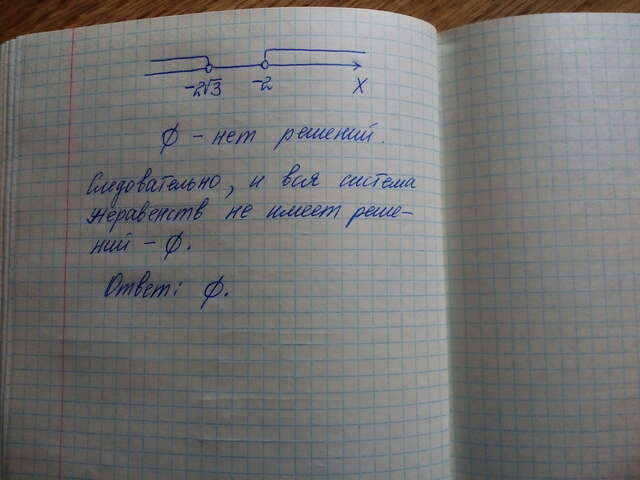 -2√3 -2 X
∅ - нет решений.
Следовательно, и вся система
неравенств не имеет реше-
ний - ∅.
Ответ: ∅.